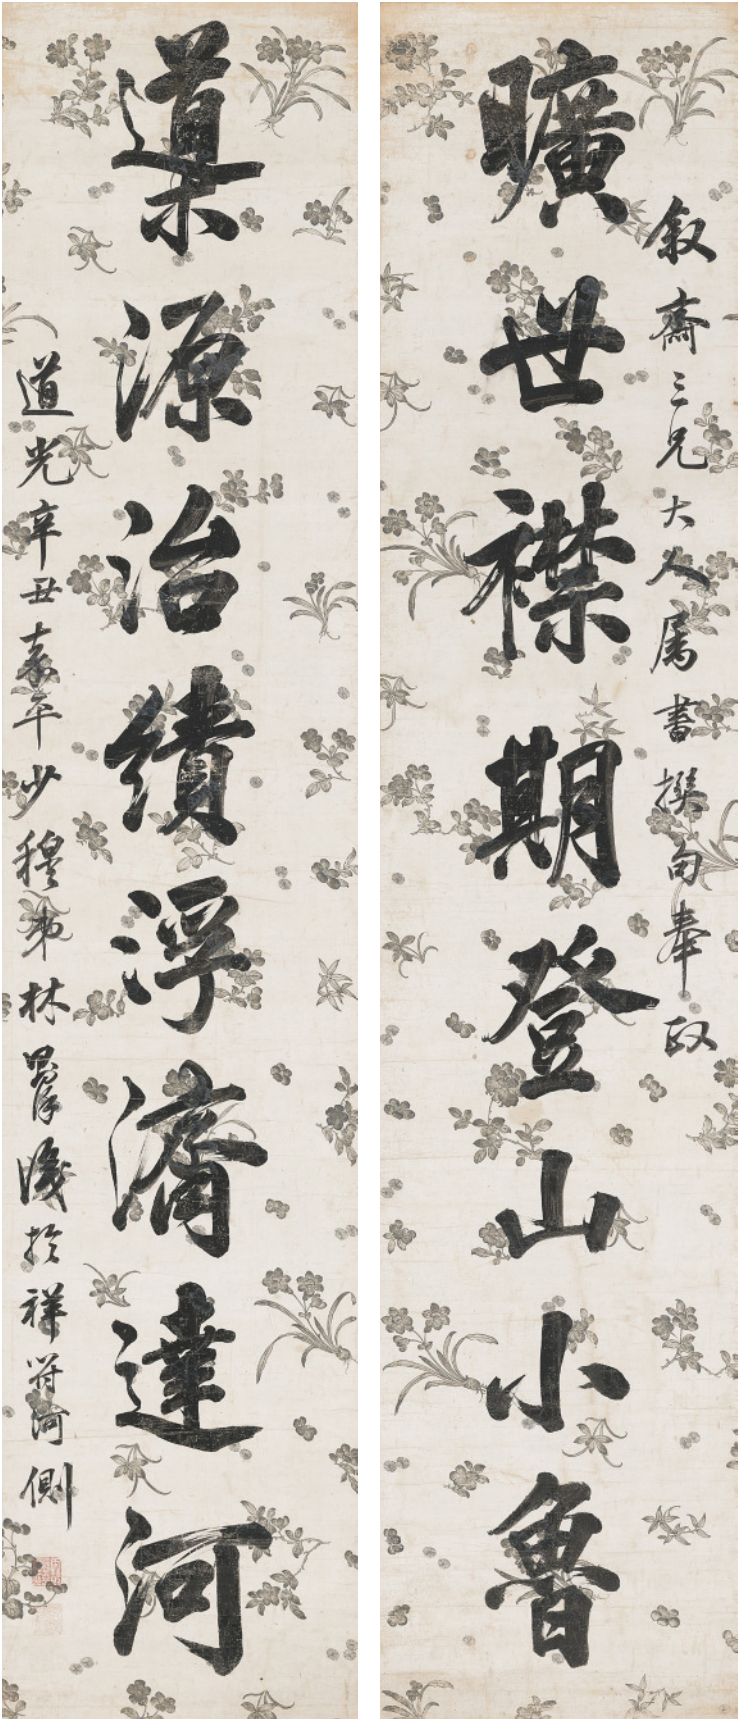 叙齋三兄大人属書撰句奉政
曠世襟期登山小魯
導源治績浮濟達河
道光辛丑嘉平少穆弟林則徐識於祥符河側